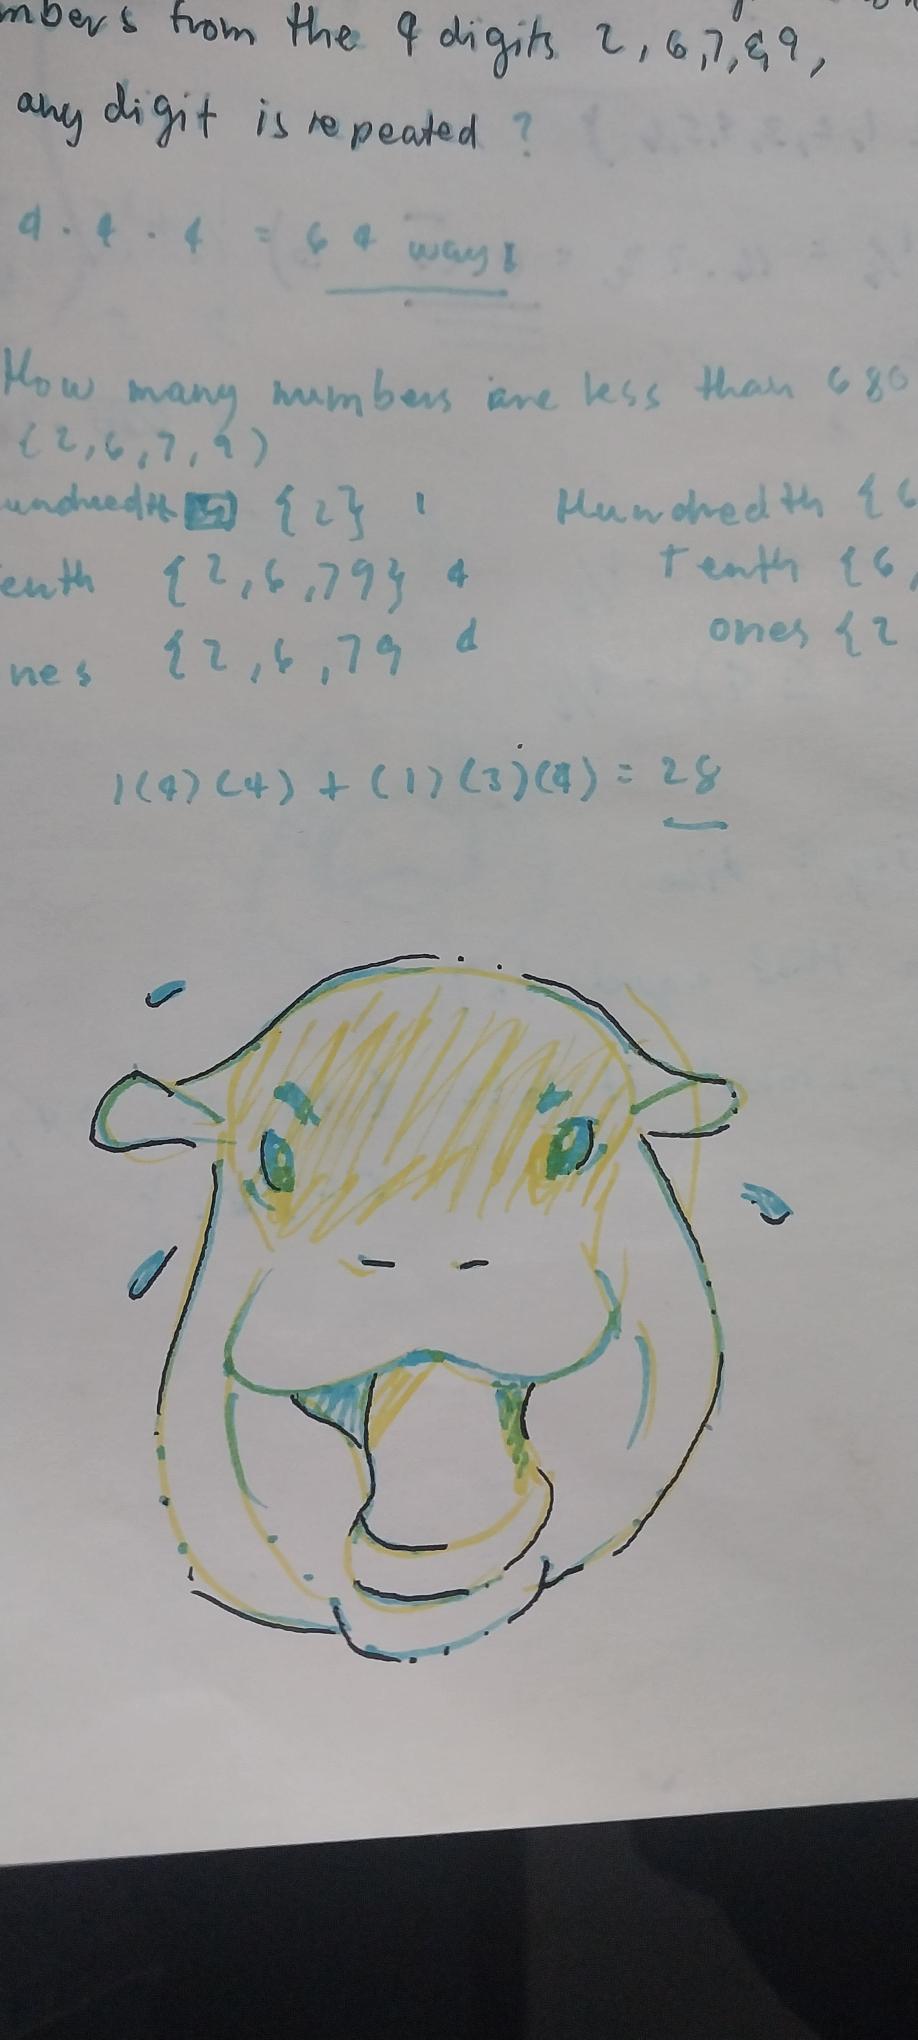 mbers from the 4 digits 2,6,7,&9,
any digit is repeated ?
4 . 4 . 4 = 64 ways
How many numbers are less than 680
{2,6,7,9)
undredth {2} 1 Hundredth {6
enth {2,6,79} 4 Tenth {6,
nes {2,6,79 4 ones {2
1(4)(4) + (1)(3)(4) = 28